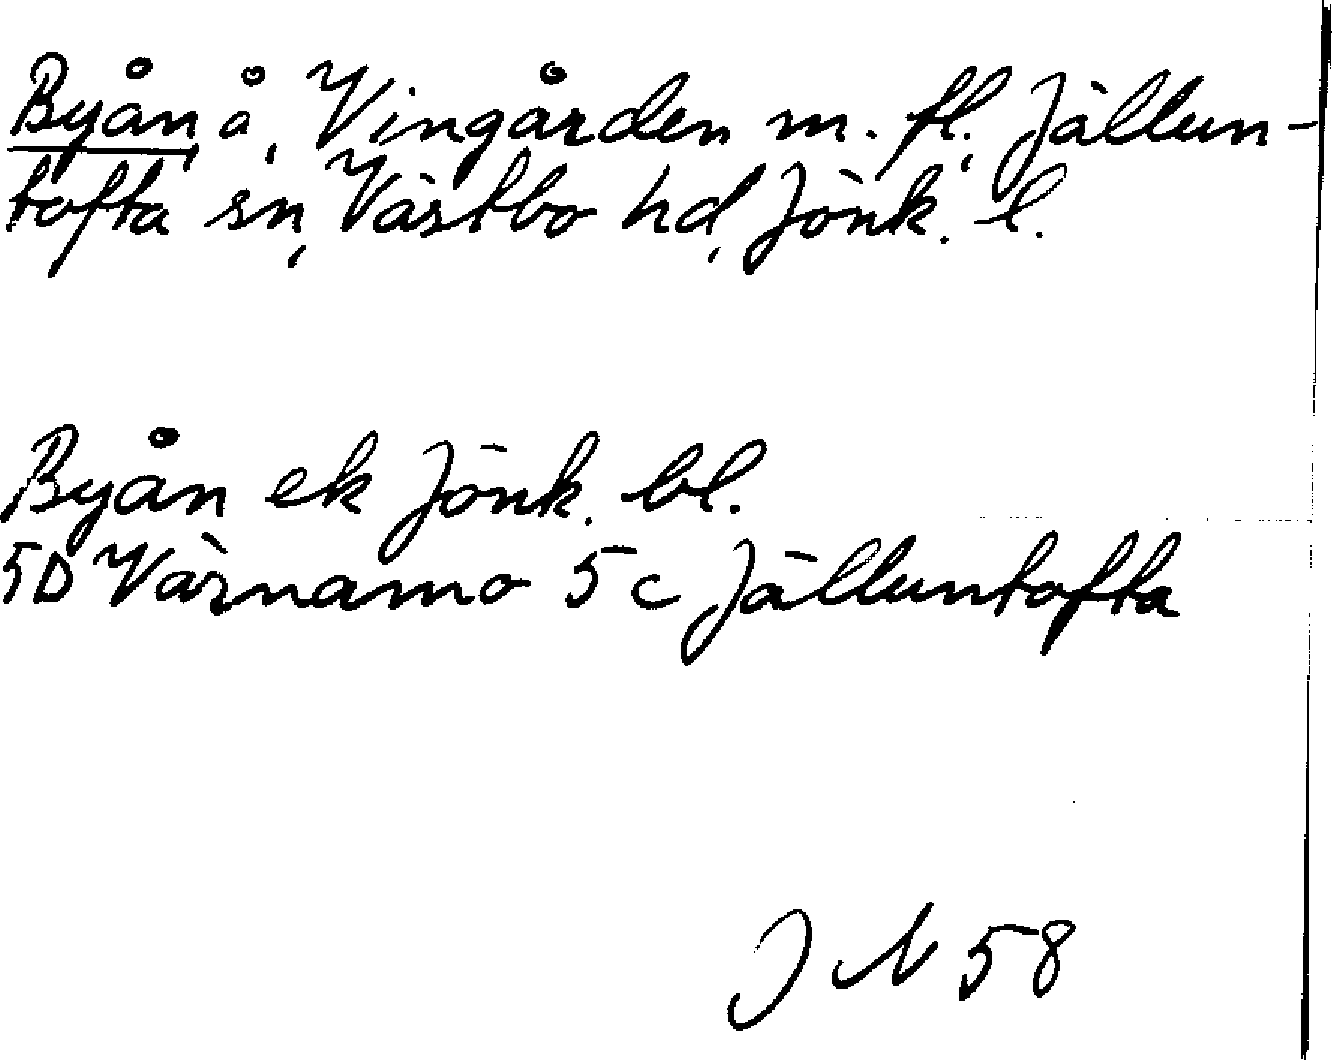 Byån, å, Vingården m. fl., Jällun-
tofta sn, Västbo hd, Jönk. l.
Byån ek Jönk. bl.
5D Värnamo 5c Jälluntofta
J N 58